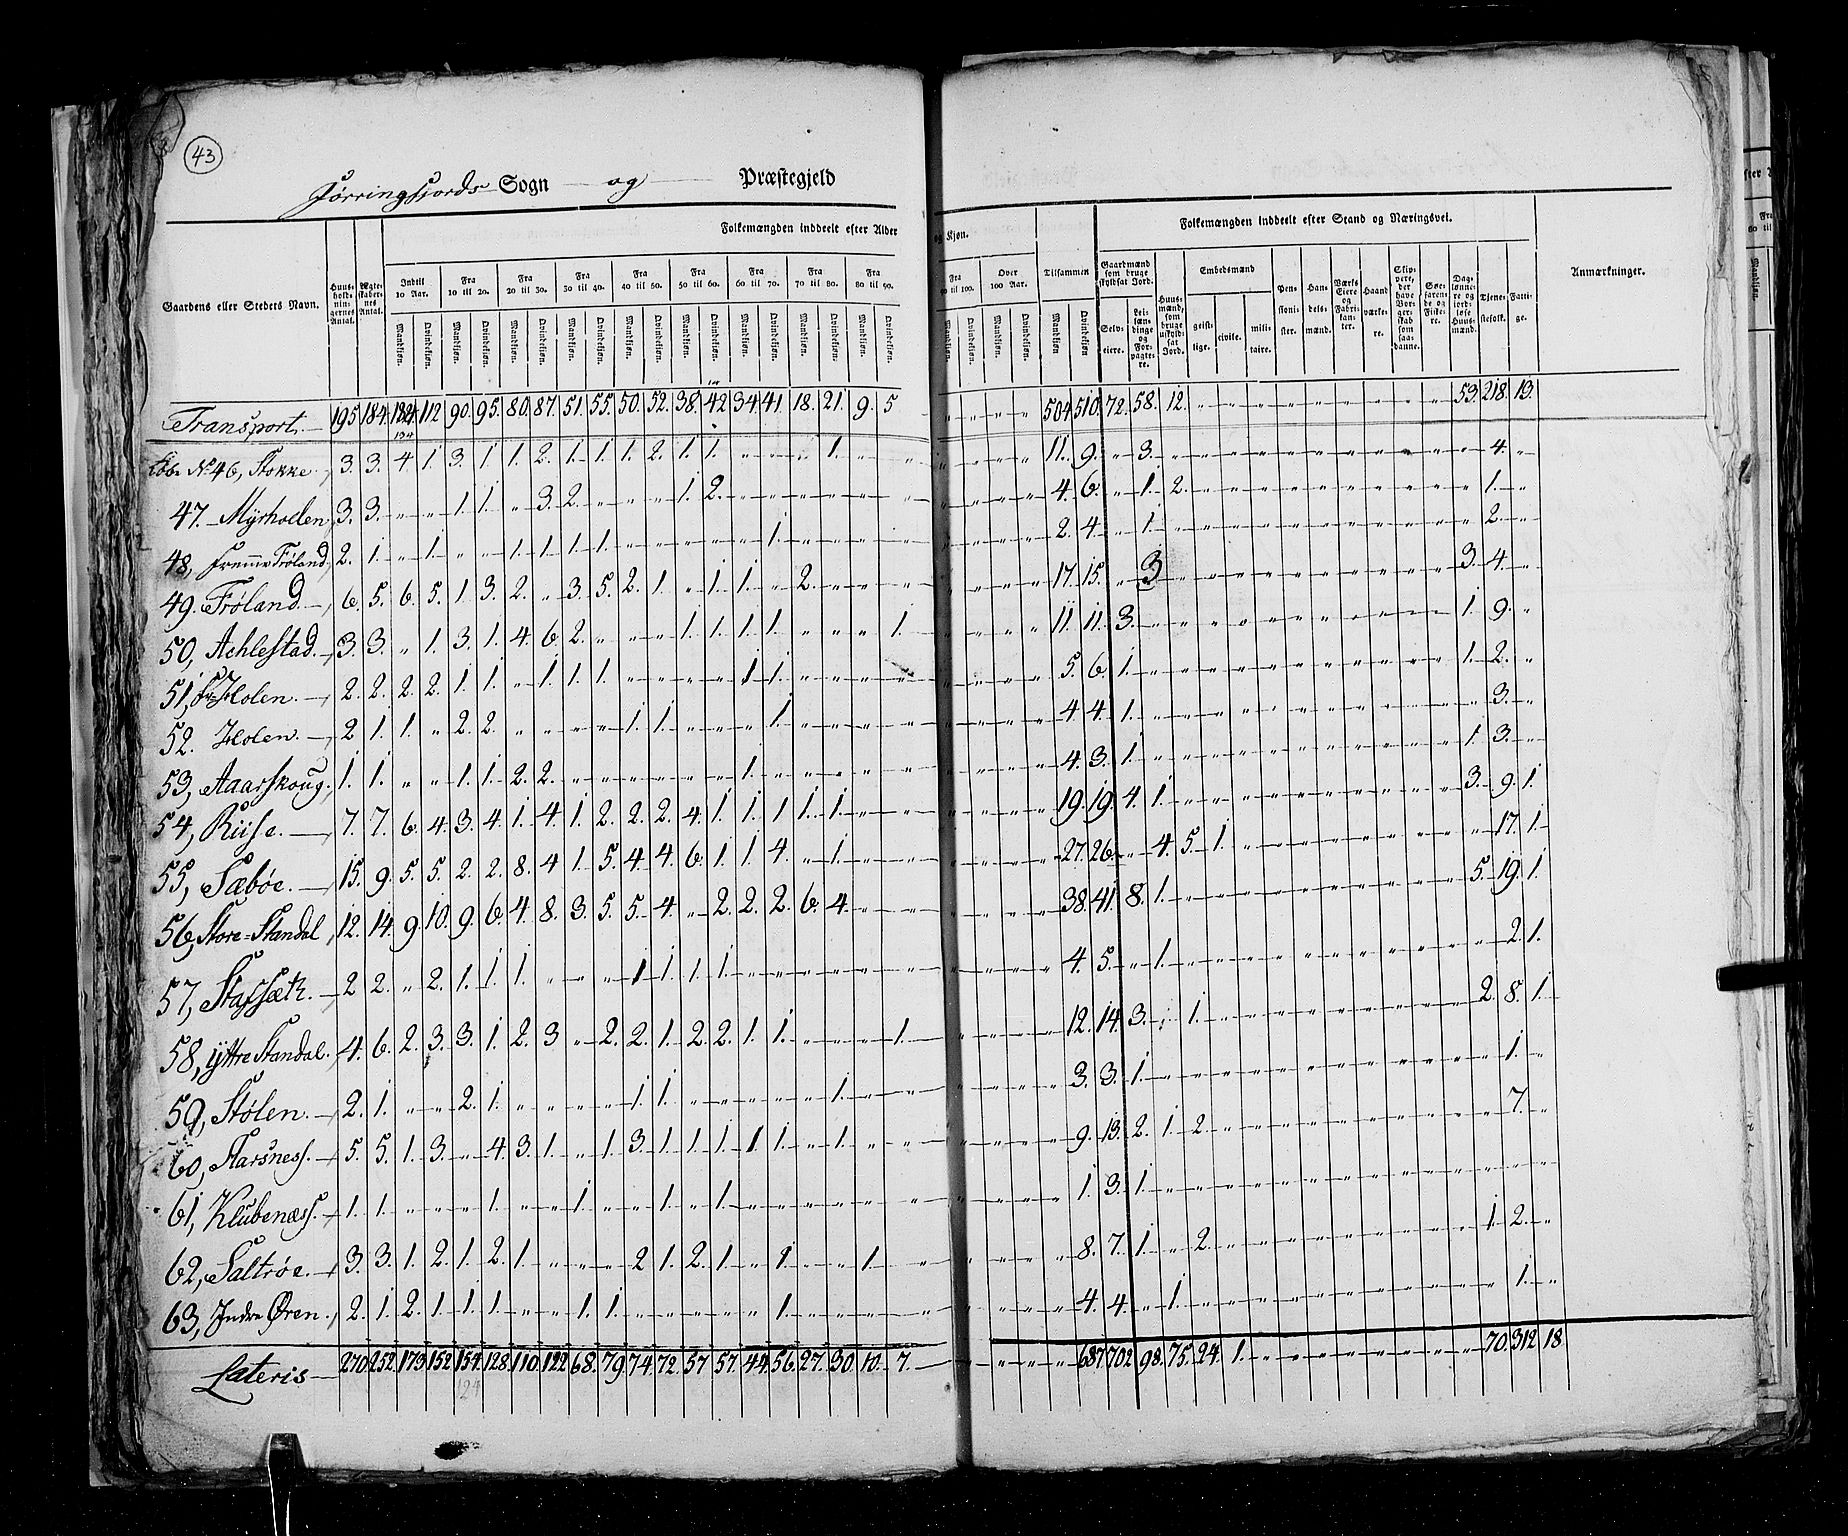 43
Jørringfjords Sogn og Præstegjeld
Folkemængden inddeelt efter Alder og Kjøn.
Folkemængden inddeelt efter Stand og Næringsvei.
Gaardens eller Stedets Navn.
Huusholdningernes Antal.
Ægteskabernes Antal.
Indtil 10 Aar.
Fra 10 til 20.
Fra 20 til 30.
Fra 30 til 40.
Fra 40 til 50.
Fra 50 til 60.
Fra 60 til 70.
Fra 70 til 80.
Fra 80 til 90.
Fra 90 til 100.
Over 100 Aar.
Tilsammen
Mandkjøn. Qvindekjøn.
Gaardmænd som bruge skyldsat Jord.
Selveiere.
Leilændinge og Forpagtere.
Huusmænd, som bruge uskyldsat Jord.
Embedsmænd
geistlige.
civile.
militaire.
Pensionister.
Handelsmænd.
Værks Eiere og Fabrikanter.
Haandværkere.
Skipperere, der have Borgerskab som saadanne.
Søefarende og Fiskere.
Daglønnere og jordløse Huusmænd.
Tjenestefolk.
Fattige.
Anmærkninger.
Transport 195 184. 134 112 90. 95. 80. 87. 51. 55. 50. 52. 38. 42 34. 41. 18. 21. 9. 5 504 510. 72. 58. 12. 53. 218. 13.
Løb. No 46, Stokke 3. 3. 4 1. 3. 1 1. 2. 1. 1. 1. 2. 1. 1. 1. 11. 9. 3. 4.
47. Myrholen 3. 3. 1 1. 3. 2. 1. 2. 4. 6. 1. 2. 1.
48, Fremre Frøland 2. 1. 1. 1. 1. 1. 1. 1. 2. 4. 1. 2.
49. Frøland 6. 5. 6. 5. 1 3. 2. 3. 5. 2. 1. 1. 1. 2. 17. 15. 3 3. 4.
50, Achlestad. 3. 3. 1. 3. 1. 4. 6. 2. 1. 1. 1. 1. 1. 11. 11. 3. 1. 9.
51, Holen 2. 2. 2. 2. 1. 1. 1. 1. 1. 1 1. 5. 6. 1. 1. 2.
52. Holen 2 1. 1. 2. 2. 1. 1. 1. 4 4. 1. 3.
53, Aarskoug 1. 1. 1. 1. 2. 2. 1. 4. 3. 1. 1. 3.
54, Riise 7. 7. 6. 4. 3. 4. 1. 4. 1. 2. 2. 2. 4. 1. 1. 1. 1. 1. 19. 19. 4. 1. 3. 9. 1.
55, Sæbøe 15. 9. 5. 5. 2. 2. 8. 4 1. 5. 4. 4. 6. 1. 1. 4. 1. 27. 26. 4. 5. 1. 17. 1.
56, Store-Standal 12. 14. 9. 10. 9. 6. 4. 8. 3. 5. 5. 4. 2. 2. 2. 6. 4. 38. 41. 8. 1. 5. 19. 1.
57, Stafsæth 2 2. 2. 1. 1. 1. 1 1. 1. 1. 4. 5. 1. 2. 1.
58, ÿttre Standal. 4. 6. 2. 3. 3. 1. 2. 3 2. 2. 1. 2. 2. 1. 1. 1. 12. 14. 3. 1. 2. 8. 1.
59, Stølen 2. 1. 2. 1. 1. 1. 1. 3. 3. 1. 1.
60, Starsness. 5. 5. 1. 3. 4. 3. 1. 1. 3. 1. 1. 1. 1 1. 1. 9. 13. 2. 1. 2. 7.
61, Klubenæss. 1. 1. 1. 1. 1. 1. 1. 3. 1.
62, Saltrøe 3. 3. 1. 2. 1. 2. 1. 2 1. 2. 1. 1. 1. 8. 7. 1. 2. 1. 2.
63, Indre Øren 2. 1. 2. 1. 1. 1. 1. 1. 1. 4. 4. 1. 1.
Lateris 270 252. 173 152 154. 128. 110. 122 68. 79. 74. 72. 57 57. 44. 56. 27. 30. 10. 7. 687 702. 98. 75. 24. 1. 70. 312 18
124